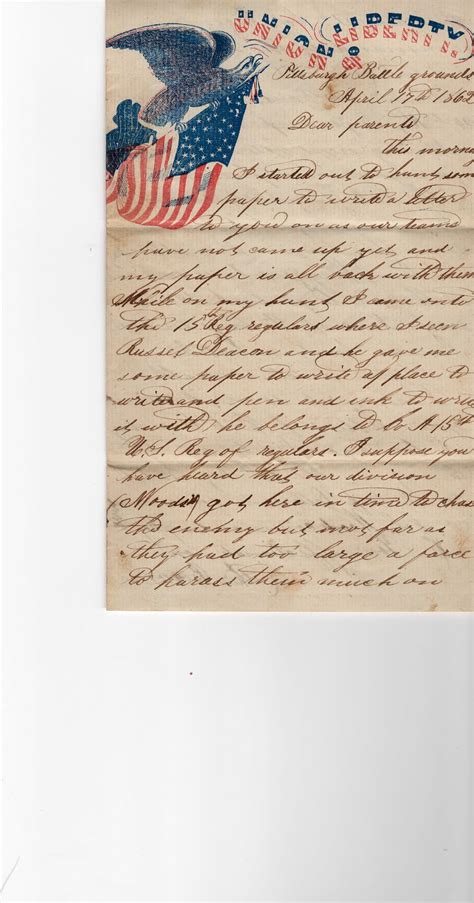 UNION & LIBERTY!
Pittsburgh Battle grounds
April 17th 1862
Dear parents
this morn
I started out to hunt som
paper to write a letter
to you on as our teams
have not came up yet and
my paper is all back with them
While on my hunt I came onto
the 15th Reg regulars where I seen
Russel Deacon and he gave me
some paper to write a place to
write and pen and ink to write
it with he belongs to Co A 15th
U.S. Reg of regulars. I suppose you
have heard that our division
(Woods) got here in time to chas
the enemy but not far as
they had too large a force
to harass them much on